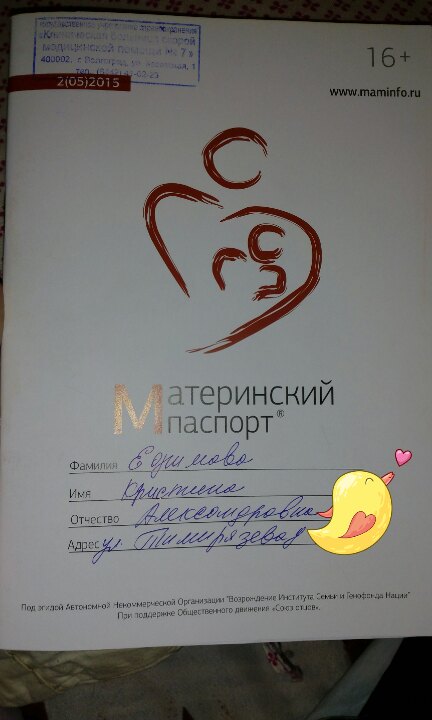 «Клиническая больница скорой
медицинской помощи № 7»
400002, г. Волгоград, ул. Казахская, 1
16+
2(05)2015
www.maminfo.ru
Материнский
паспорт®
Фамилия Ефимова
Имя Кристина
Отчество Александровна
Адрес ул. Тимирязева
Под эгидой Автономной Некоммерческой Организации "Возрождение Института Семьи и Генофонда Нации"
При поддержке Общественного движения «Союз отцов».